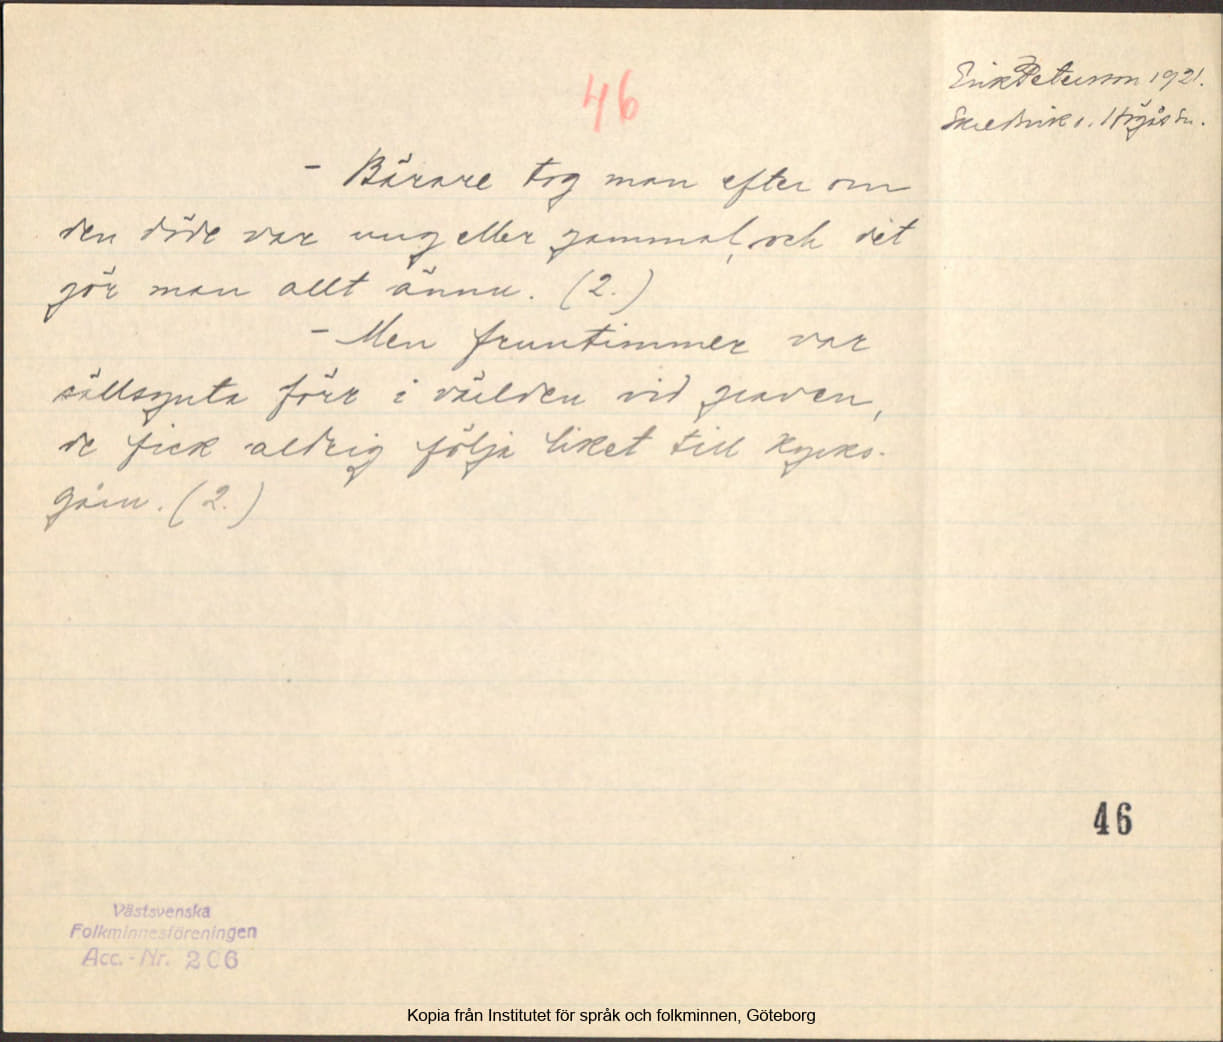 46
Erik Petersson 1921.
Skredsvik s. Högås sn.
- Bärare tog man efter om
den döde var ung eller gammal, och det
gör man allt ännu. (2.)
- Men fruntimmer var
sällsynta förr i världen vid graven,
de fick aldrig följa liket till kyrko-
gårn. (2.)
46
Västsvenska
Folkminnesföreningen
Acc.-Nr. 206
Kopia från Institutet för språk och folkminnen, Göteborg